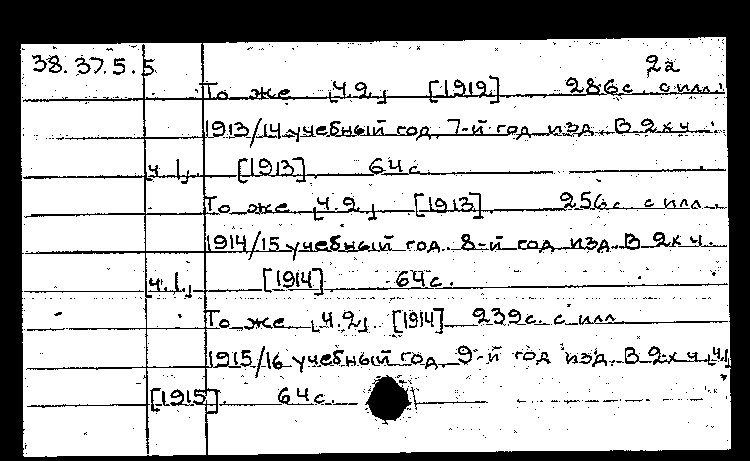 38.37.5.5 2а
То же ⌊Ч.2⌋ [1912] 286с. с илл.
1913/14 учебный год. 7-й год изд. В 2х ч.
ч. I⌋. [1913]. 64с.
То же ⌊Ч.2⌋ [1913]. 256с. с илл.
1914/15 учебный год. 8-й год изд. В 2х ч.
⌊ч. I.⌋ [1914] 64с.
То же ⌊Ч.2⌋. [1914] 239с. с илл.
1915/16 учебный год. 9-й год изд. В 2х ч ⌊Ч.I⌋
[1915]. 64с.